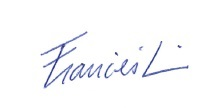 Francis Li